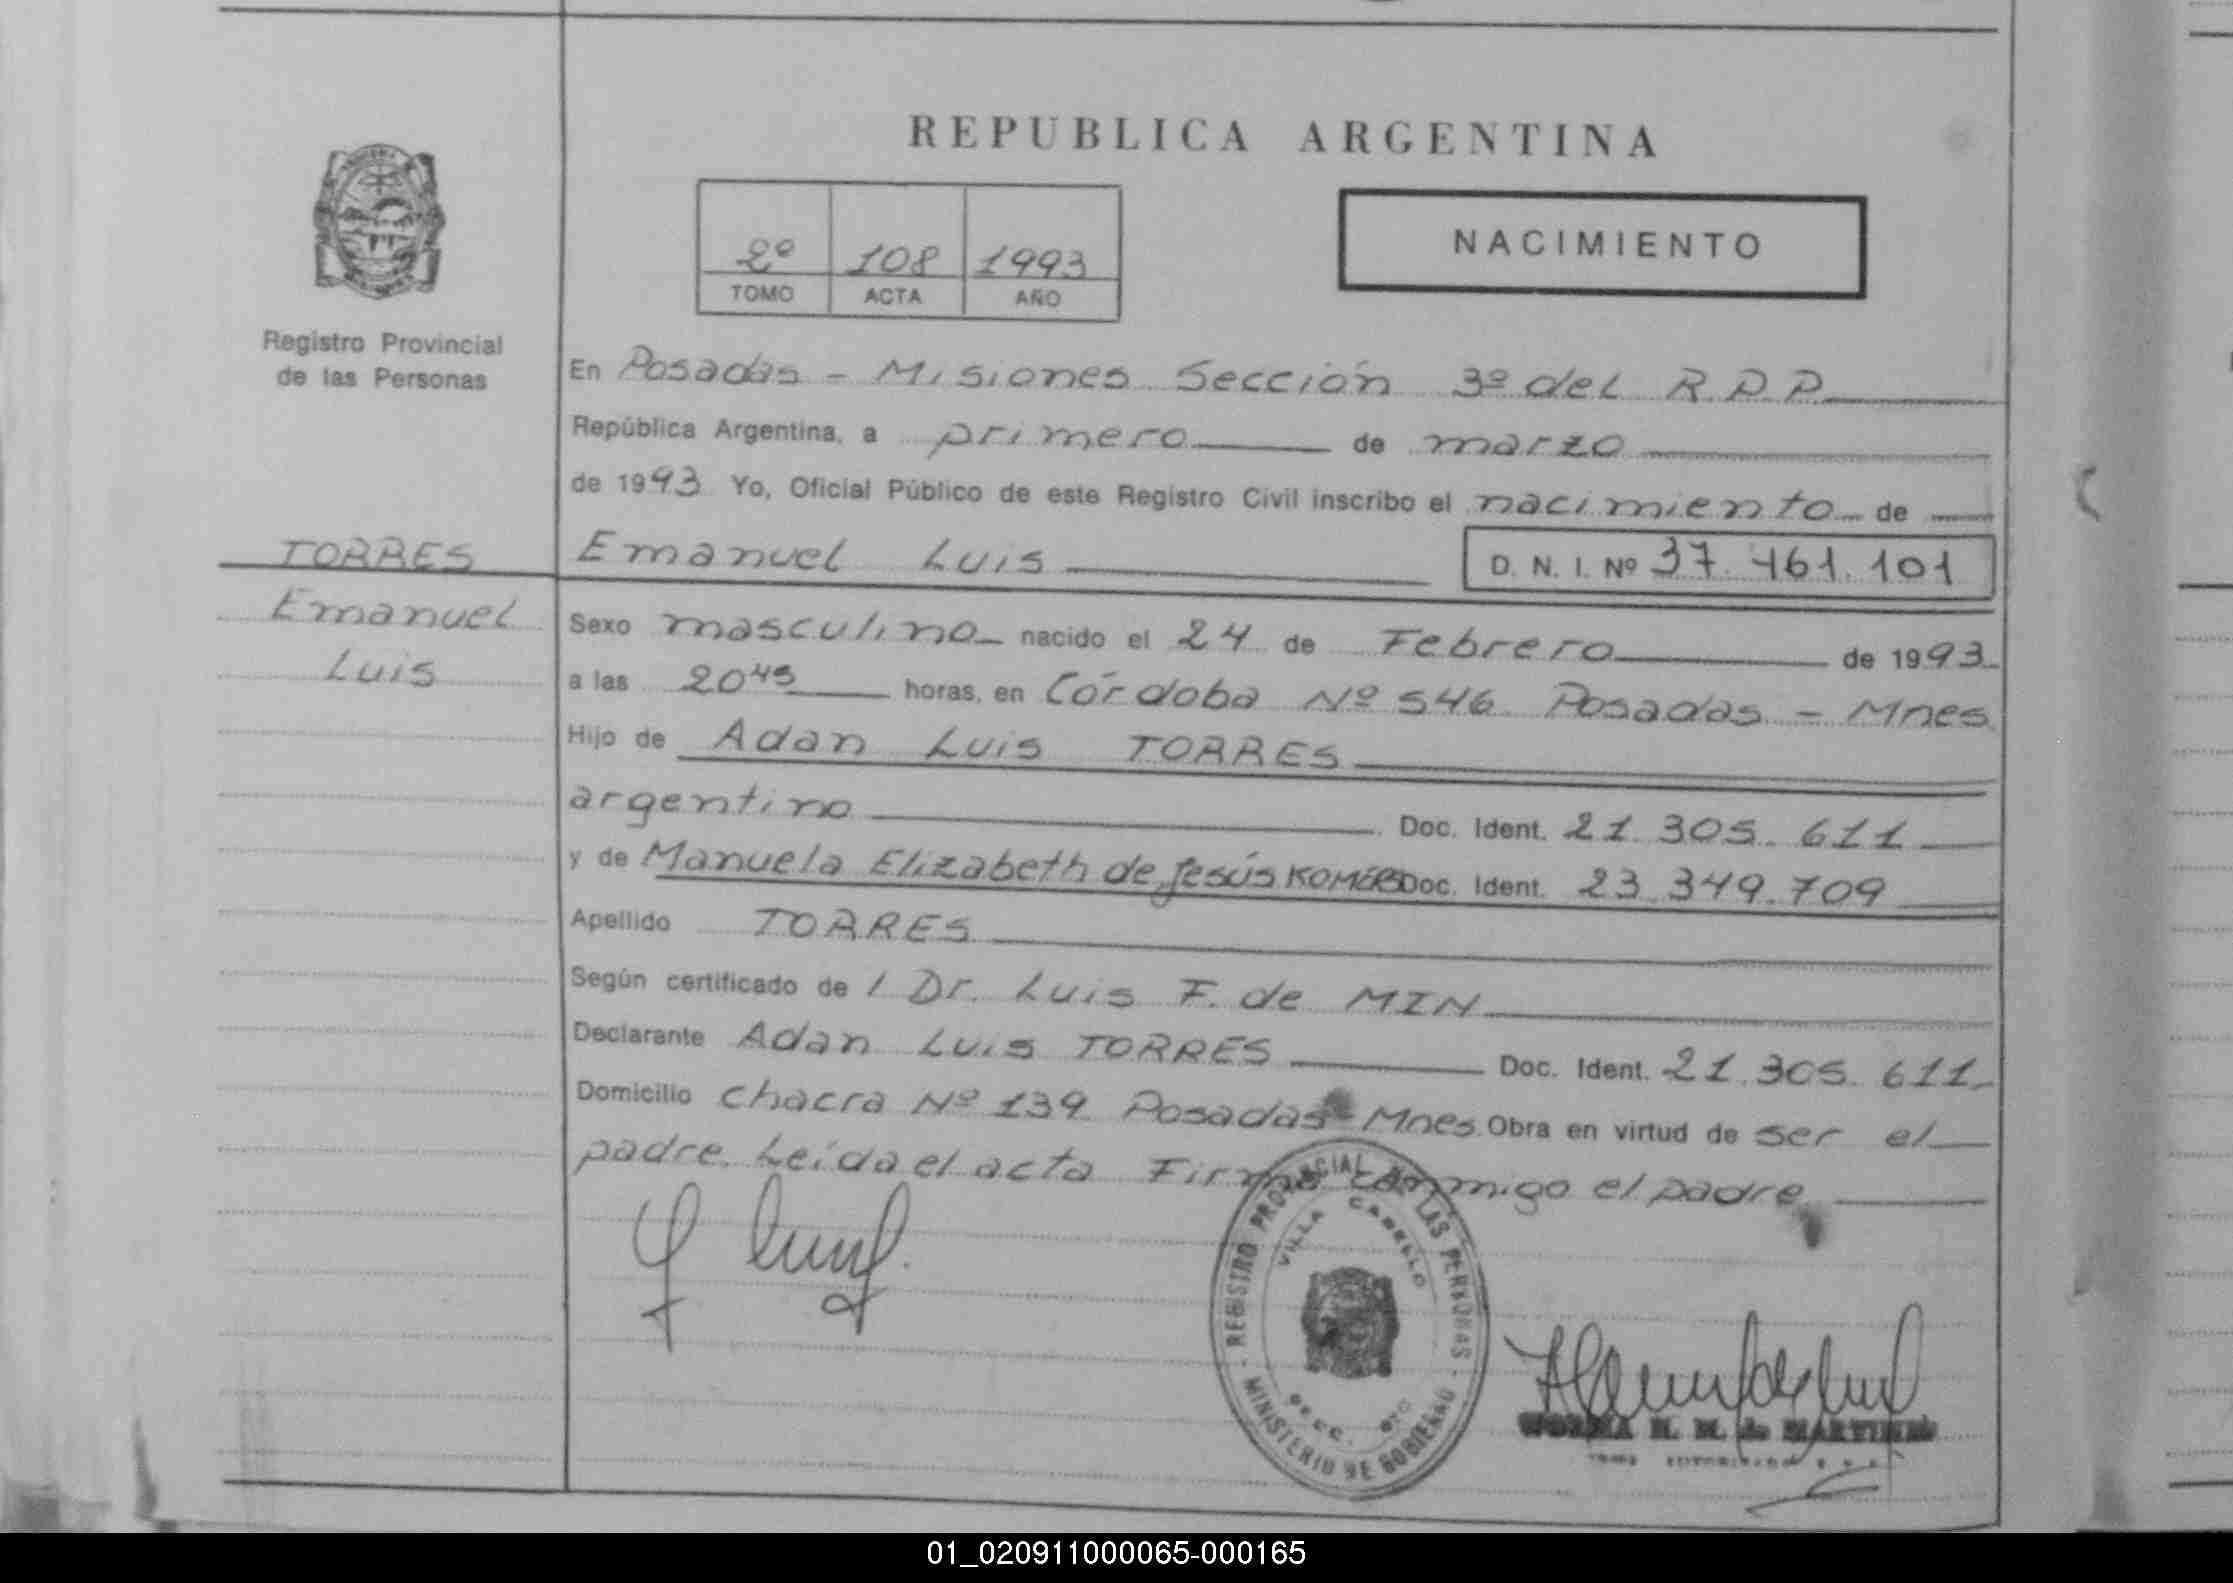 REPUBLICA ARGENTINA
2º 108 1993
TOMO ACTA AÑO
NACIMIENTO
Registro Provincial
de las Personas
TORRES
Emanuel
Luis
En Posadas - Misiones Sección 3º del R.P.P.
República Argentina, a primero de marzo
de 1993 Yo, Oficial Público de este Registro Civil inscribo el nacimiento de
Emanuel Luis D. N. I. Nº 37.461.101
Sexo masculino nacido el 24 de Febrero de 1993
a las 20⁴⁵ horas, en Córdoba Nº 546 Posadas - Mnes
Hijo de Adan Luis TORRES
argentino Doc. Ident. 21.305.611
y de Manuela Elizabeth de Jesús Doc. Ident. 23.349.709
Apellido TORRES
Según certificado de l Dr. Luis F. de MIN
Declarante Adan Luis TORRES Doc. Ident. 21.305.611
Domicilio chacra Nº 139 Posadas - Mnes. Obra en virtud de ser el
padre. Leída el acta Firma conmigo el padre
REGISTRO PROVINCIAL DE LAS PERSONAS
VILLA CABELLO
MINISTERIO DE GOBIERNO
NORMA H. M. de MARTINEZ
01_020911000065-000165